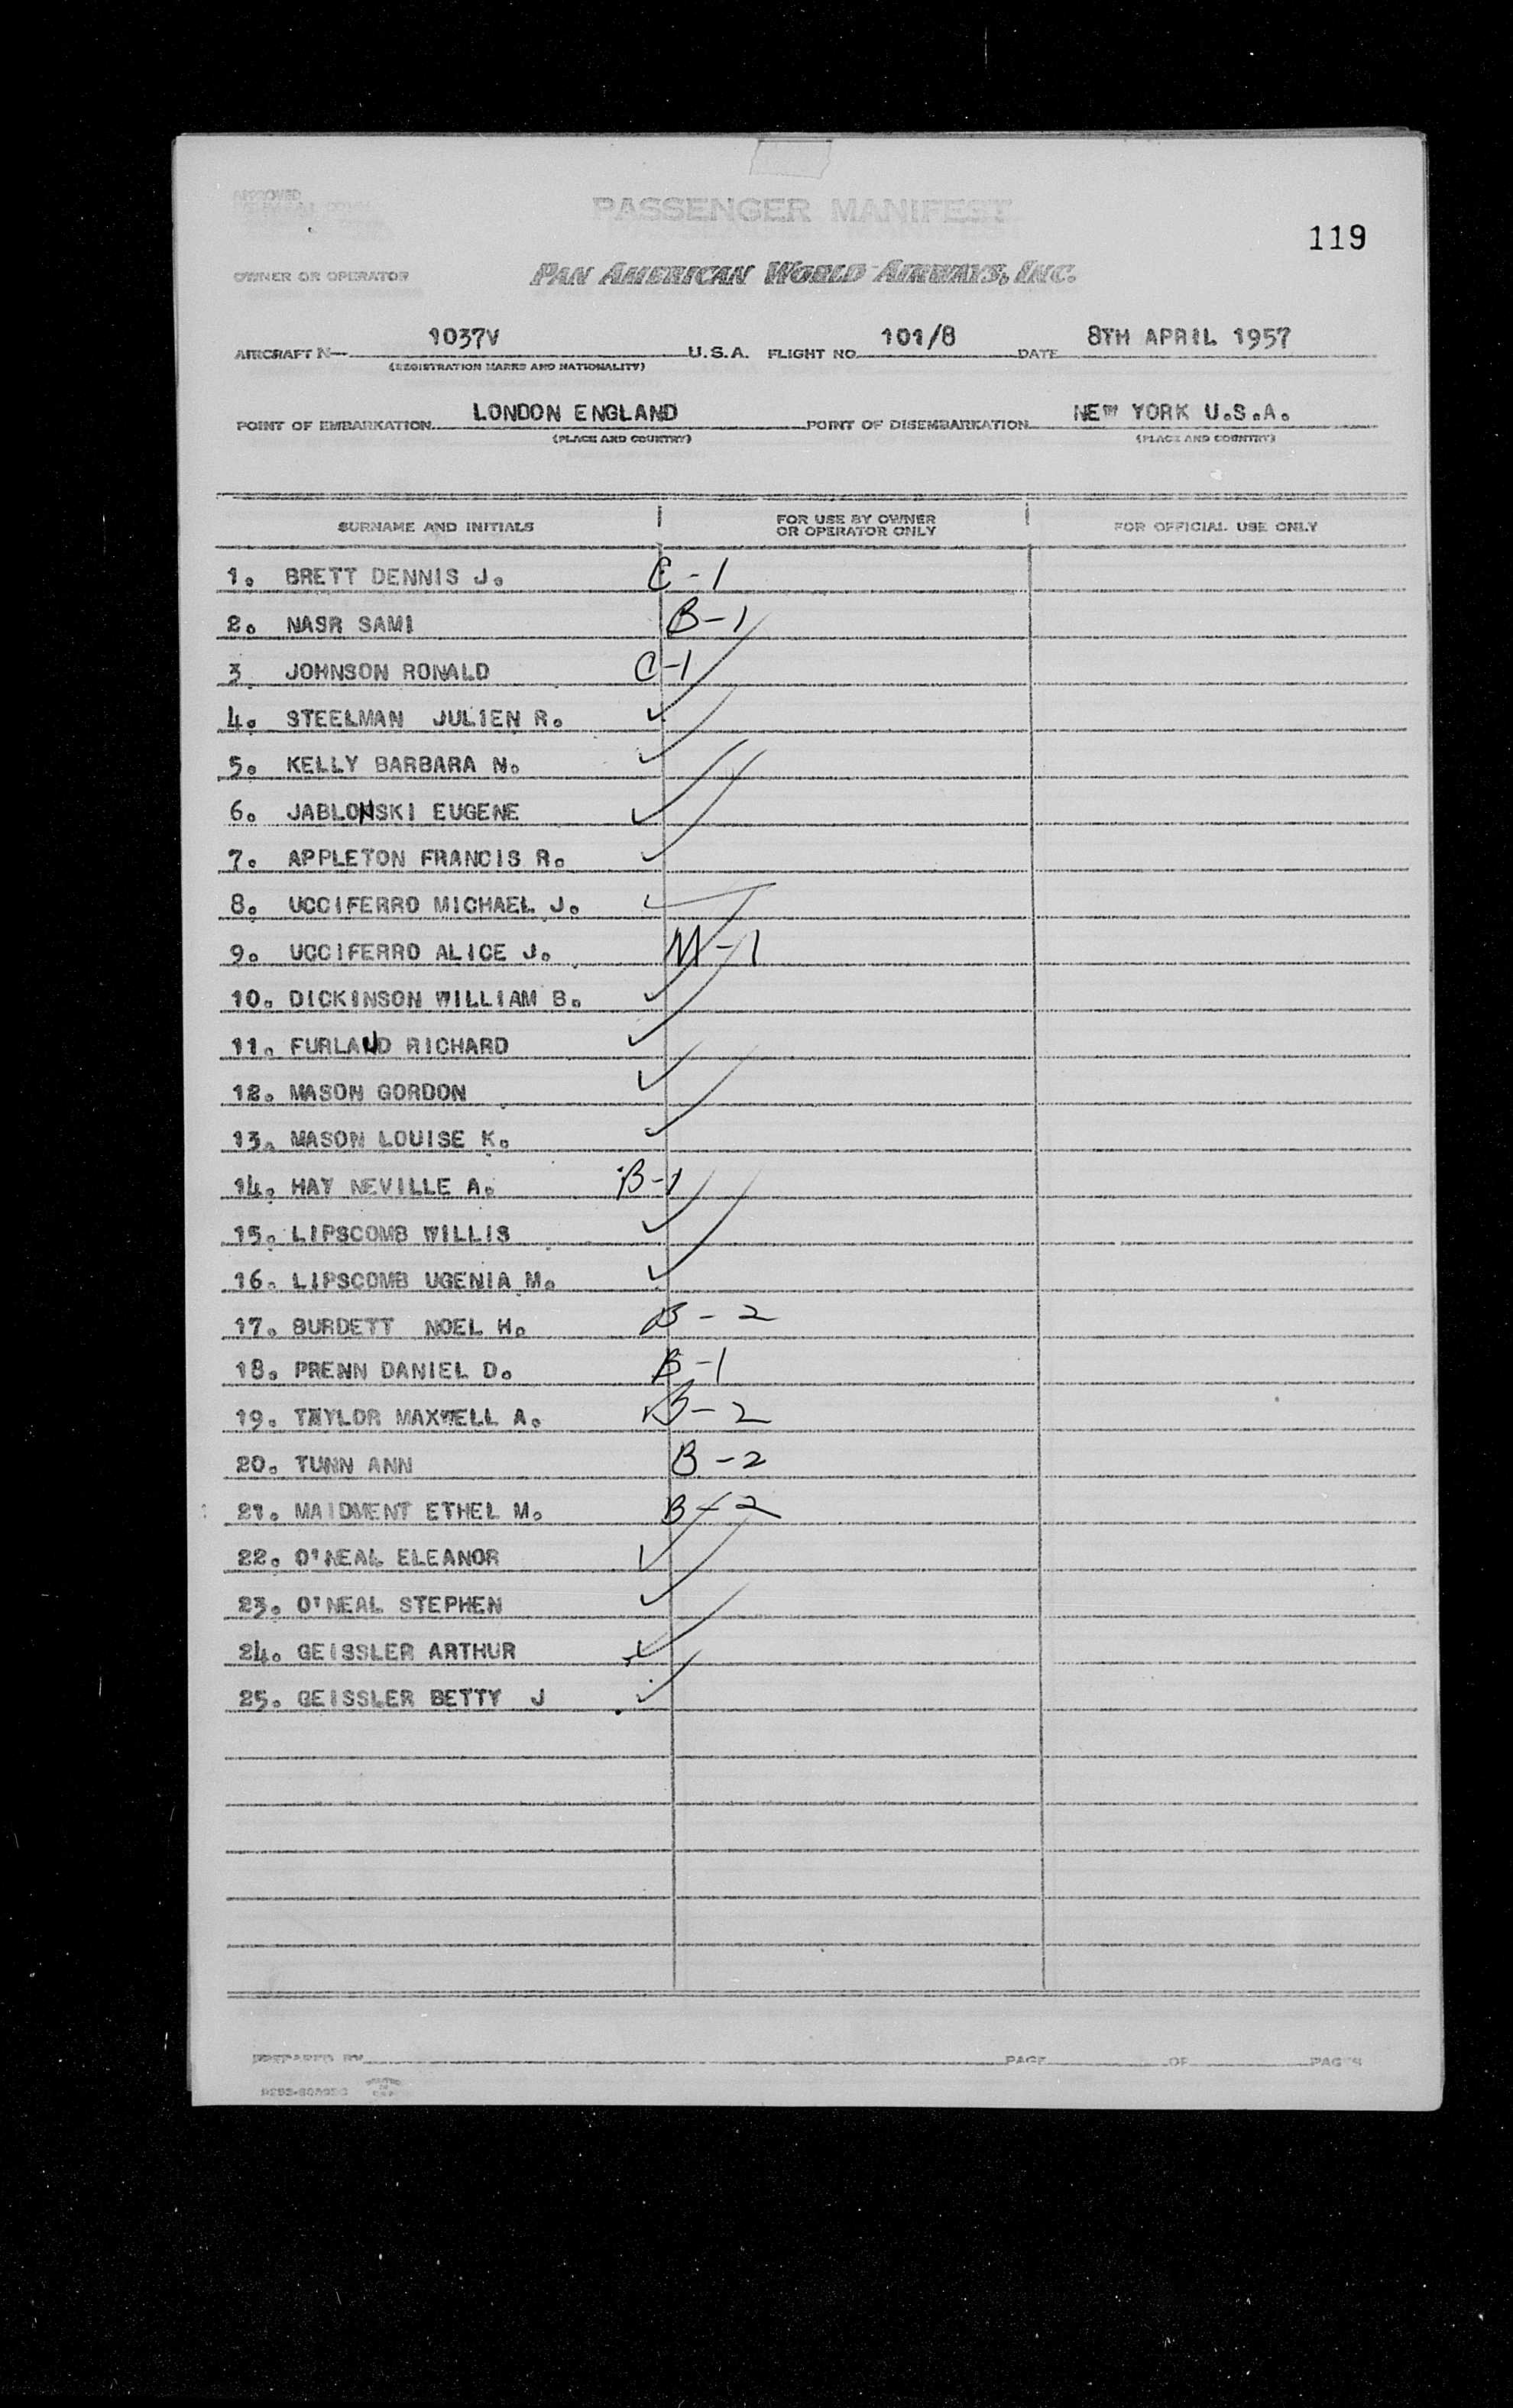 APPROVED
PASSENGER MANIFEST
119
OWNER OR OPERATOR PAN AMERICAN WORLD AIRWAYS, INC.
AIRCRAFT N- 1037V U.S.A. FLIGHT NO 101/8 DATE 8TH APRIL 1957
(REGISTRATION MARKS AND NATIONALITY)
POINT OF EMBARKATION LONDON ENGLAND POINT OF DISEMBARKATION NEW YORK U.S.A.
(PLACE AND COUNTRY) (PLACE AND COUNTRY)
SURNAME AND INITIALS FOR USE BY OWNER OR OPERATOR ONLY FOR OFFICIAL USE ONLY
1. BRETT DENNIS J. C-1
2. NASR SAMI B-1
3. JOHNSON RONALD C-1
4. STEELMAN JULIEN R. ✓
5. KELLY BARBARA N. ✓
6. JABLONSKI EUGENE ✓
7. APPLETON FRANCIS R. ✓
8. UCCIFERRO MICHAEL J. ✓
9. UCCIFERRO ALICE J. M-1
10. DICKINSON WILLIAM B. ✓
11. FURLAUD RICHARD ✓
12. MASON GORDON ✓
13. MASON LOUISE K. ✓
14. HAY NEVILLE A. B-1
15. LIPSCOMB WILLIS ✓
16. LIPSCOMB UGENIA M. ✓
17. BURDETT NOEL H. B-2
18. PRENN DANIEL D. B-1
19. TAYLOR MAXWELL A. B-2
20. TUNN ANN B-2
21. MAIDMENT ETHEL M. B-2
22. O'NEAL ELEANOR ✓
23. O'NEAL STEPHEN ✓
24. GEISSLER ARTHUR ✓
25. GEISSLER BETTY J ✓
PREPARED BY PAGE OF PAGES